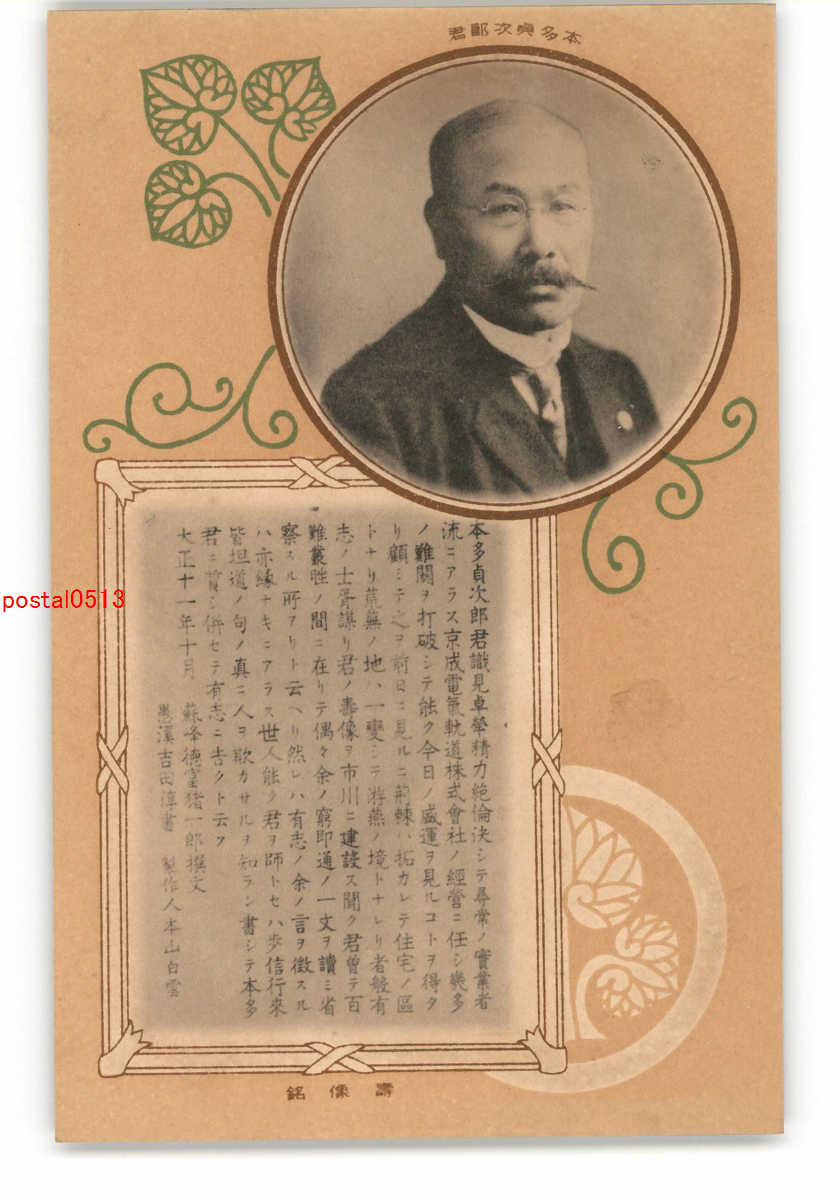 本多貞次郎君
本多貞次郎君識見卓犖精力絶倫決シテ尋常ノ實業者
流ニアラス京成電氣軌道株式會社ノ經營ニ任シ幾多
ノ難關ヲ打破シテ能ク今日ノ盛運ヲ見ルコトヲ得タ
リ顧ミテ之ヲ前日ニ見ルニ荊棘ハ拓カレテ住宅ノ區
トナリ荒蕪ノ地ハ一變シテ游燕ノ境トナレリ者般有
志ノ士胥謀リ君ノ壽像ヲ市川ニ建設ス聞ク君曾テ百
難叢胜ノ間ニ在リテ偶々余ノ窮即通ノ一文ヲ讀ミ省
察スル所アリト云ヘリ然レハ有志ノ余ノ言ヲ徴スル
ハ亦縁ナキニアラス世人能ク君ヲ師トセハ歩信行來
皆坦道ノ句ノ真ニ人ヲ欺カサルヲ知ラン書シテ本多
君ニ質シ併セテ有志ニ告クト云フ
大正十一年十月 蘇峰徳富猪一郎撰文
愚溪吉田淳書 製作人本山白雲
壽像銘
postal0513